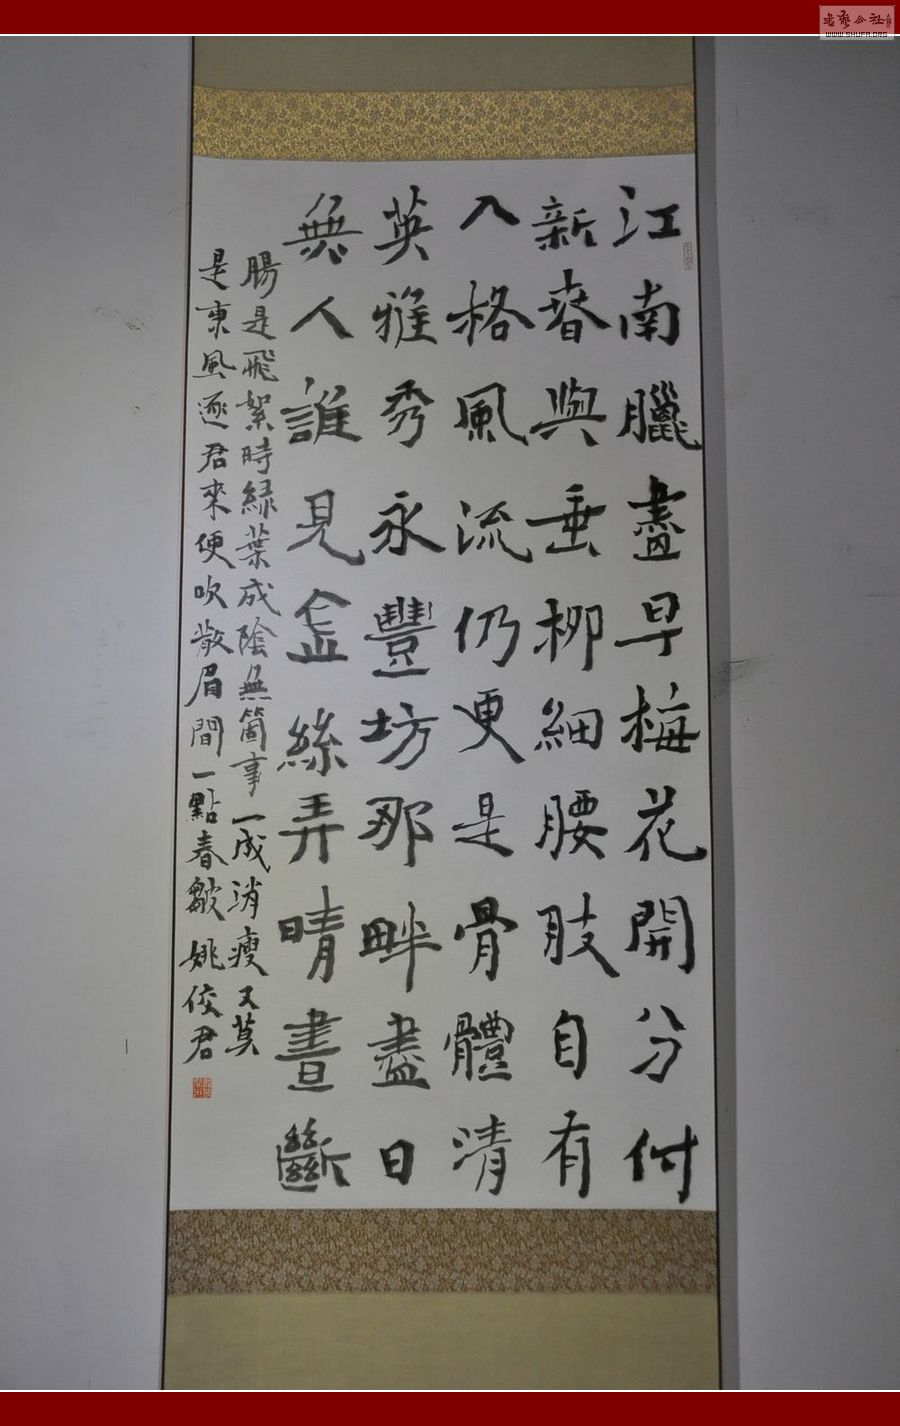 書藝公社
WWW.SHUFA.ORG
江南臘盡早梅花開分付
新春與垂柳細腰肢自有
入格風流仍更是骨體清
英雅秀永豐坊那畔盡日
無人誰見金絲弄晴晝斷
腸是飛絮時綠葉成陰無箇事一成消瘦又莫
是東風逐君來便吹散眉間一點春皺 姚佼君